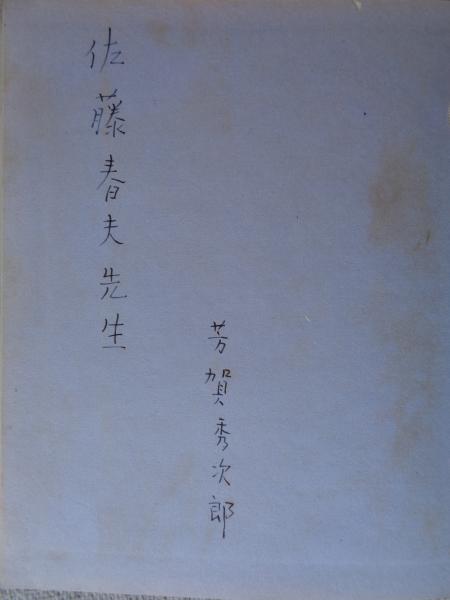 佐藤春夫先生
芳賀秀次郎